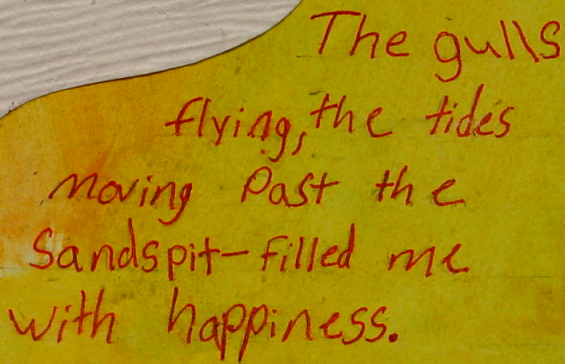 The gulls
flying, the tides
moving Past the
Sandspit-filled me
with happiness.